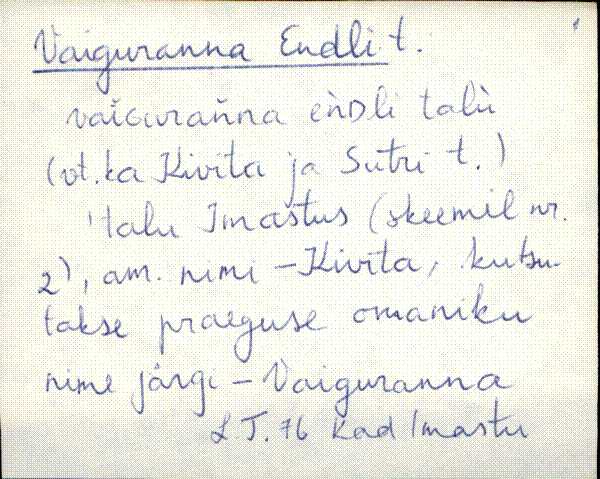 Vaiguranna Endli t.
vaiGurañna èǹDli talù
(vt. ka Kivita ja Sutri t.)
'talu Imastus (skeemil nr.
2)', am. nimi – Kivita, kutsu-
takse praeguse omaniku
nime järgi – Vaiguranna
T. 76 Kad Imastu